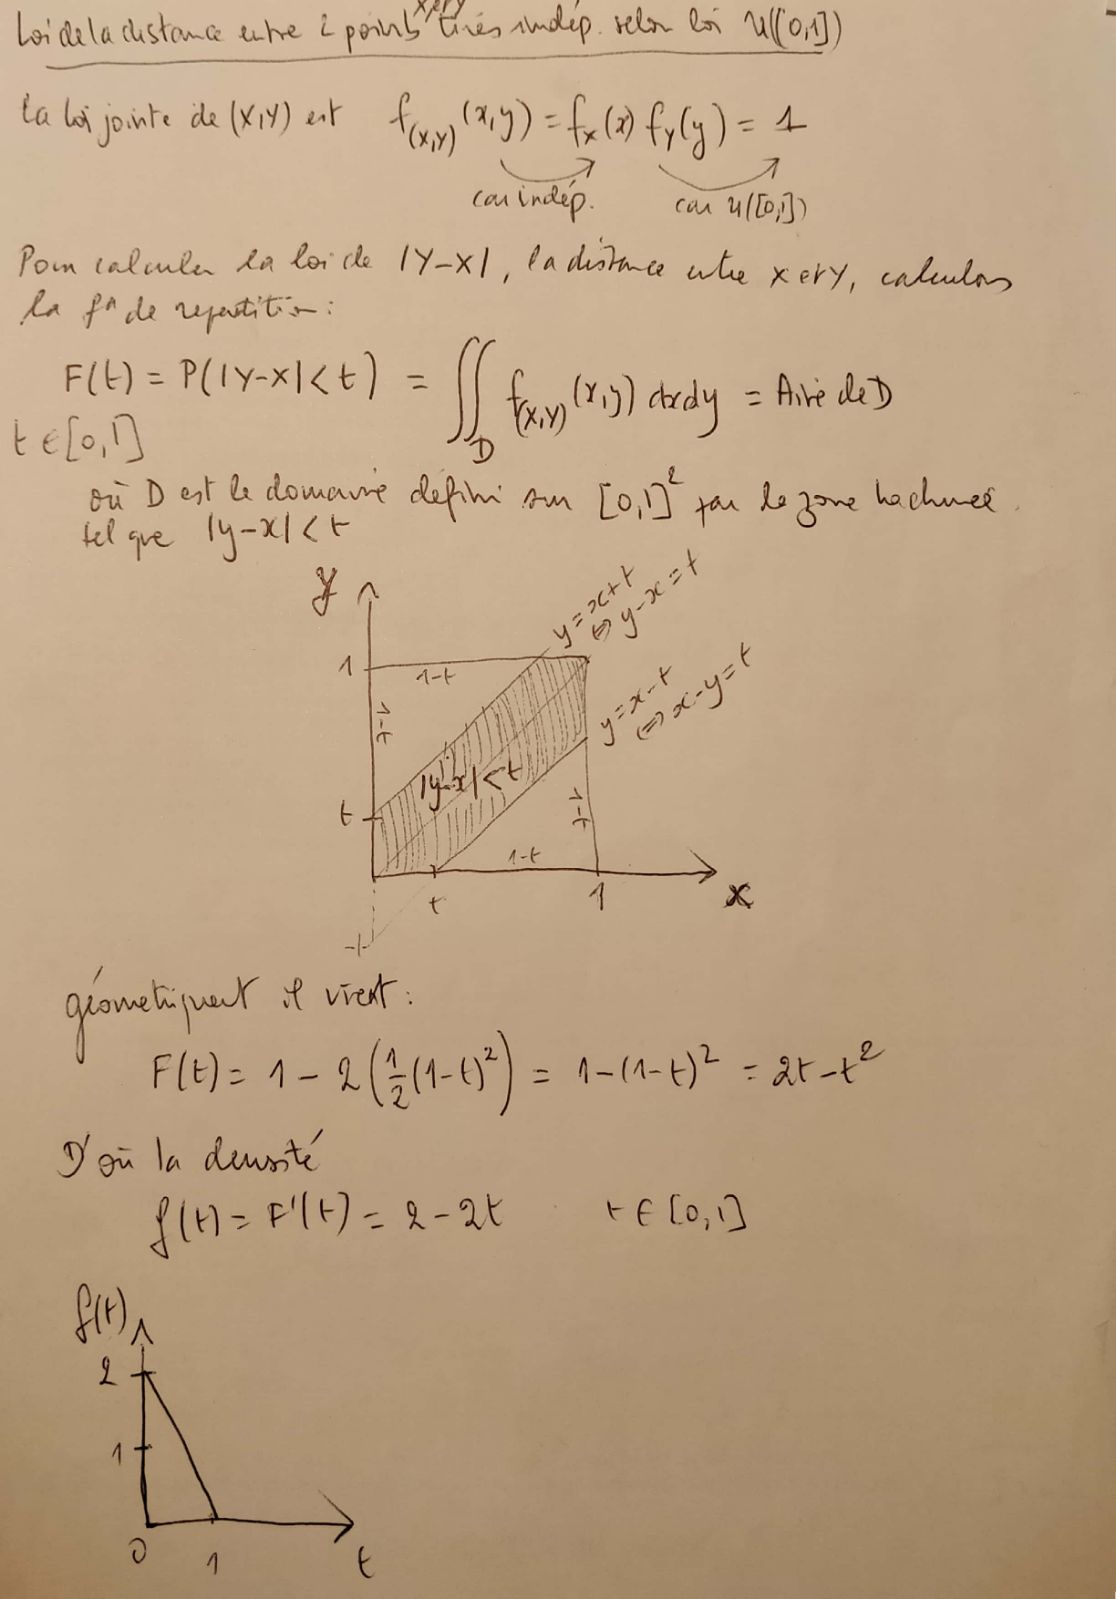 x, et y
Loi de la distance entre 2 points tirés indép. selon loi U([0,1])
La loi jointe de (X,Y) est f_(X,Y)(x,y) = f_X(x) f_Y(y) = 1
car indép. car U([0,1])
Pour calculer la loi de |Y-X|, la distance entre X et Y, calculons
la f° de repartition :
F(t) = P(|Y-X| < t) = ∬_D f_(X,Y)(x,y) dxdy = Aire de D
t ∈ [0,1]
où D est le domaine défini sur [0,1]² par la zone hachurée
tel que |y-x| < t
y
y = x+t
⇔ y-x = t
1
1-t
y = x-t
⇔ x-y = t
1-t
|y-x| < t
t
1-t
1-t
t
1
x
-t
géometriquent il vient :
F(t) = 1 - 2(1/2 (1-t)²) = 1-(1-t)² = 2t-t²
D'où la densité
f(t) = F'(t) = 2-2t t ∈ [0,1]
f(t)
2
1
0
1
t